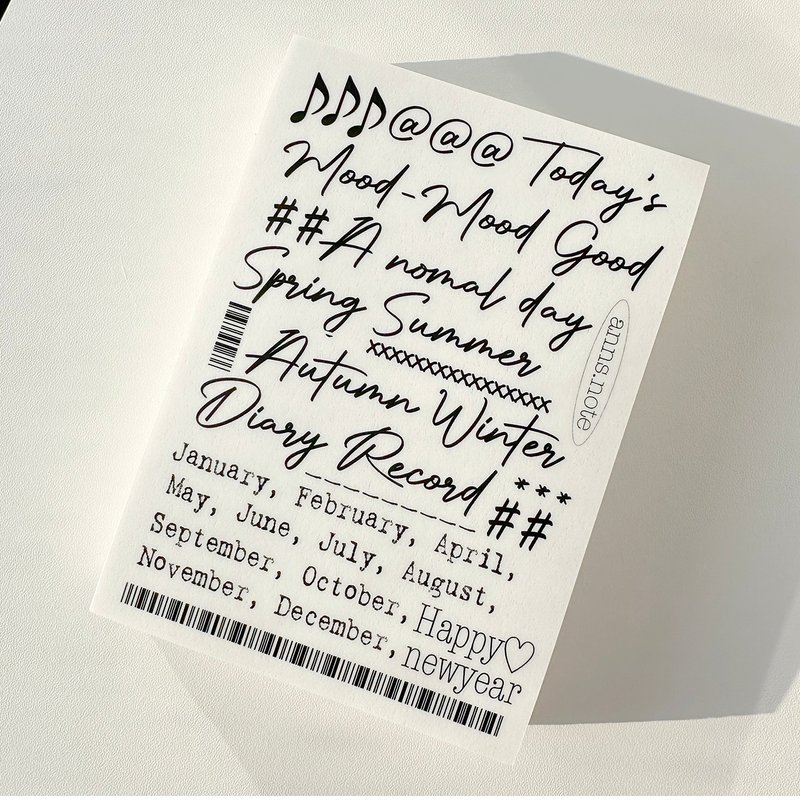 ♪♪♪@@@Today's
Mood-Mood Good
##A nomal day
Spring Summer
xxxxxxxxxxxxxxxxx
anns.note
Autumn Winter
Diary Record ***
_ _ _ _ _ _ _ _ _ ##
January, February, April,
May, June, July, August,
September, October,
November, December,
Happy♡
newyear